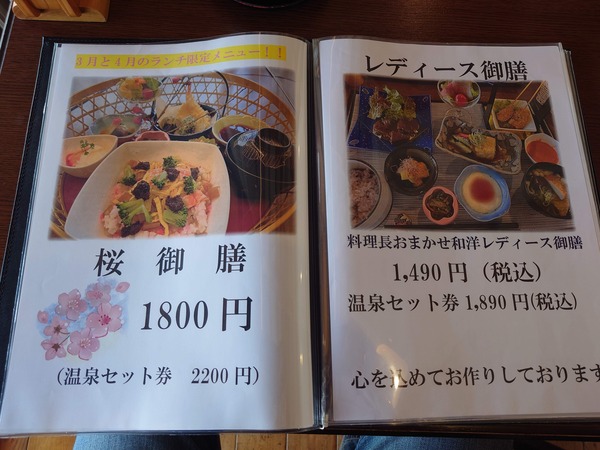 3月と4月のランチ限定メニュー！！
桜御膳
1800円
（温泉セット券 2200円）
レディース御膳
料理長おまかせ和洋レディース御膳
1,490円（税込）
温泉セット券 1,890円(税込)
心を込めてお作りしております